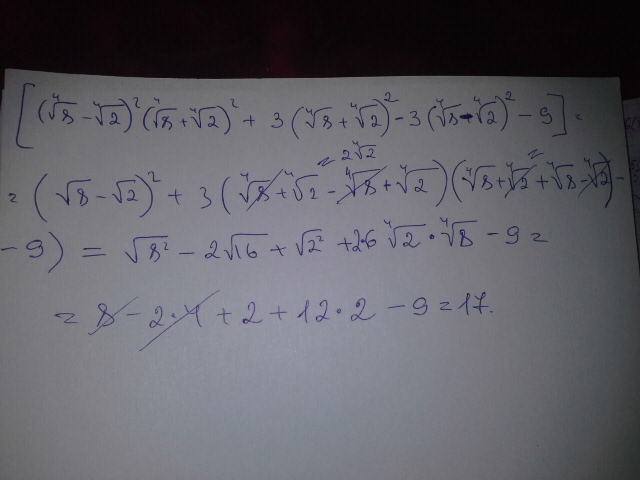 [(⁴√8 - ⁴√2)² (⁴√8 + ⁴√2)² + 3 (⁴√8 + ⁴√2)² - 3 (⁴√8 - ⁴√2)² - 9] =
= 2⁴√2 =
= (√8 - √2)² + 3 (⁴√8 + ⁴√2 - ⁴√8 + ⁴√2) (⁴√8 + ⁴√2 + ⁴√8 - ⁴√2) -
- 9) = √8² - 2√16 + √2² + 2·6 ⁴√2 · ⁴√8 - 9 =
= 8 - 2·4 + 2 + 12·2 - 9 = 17.